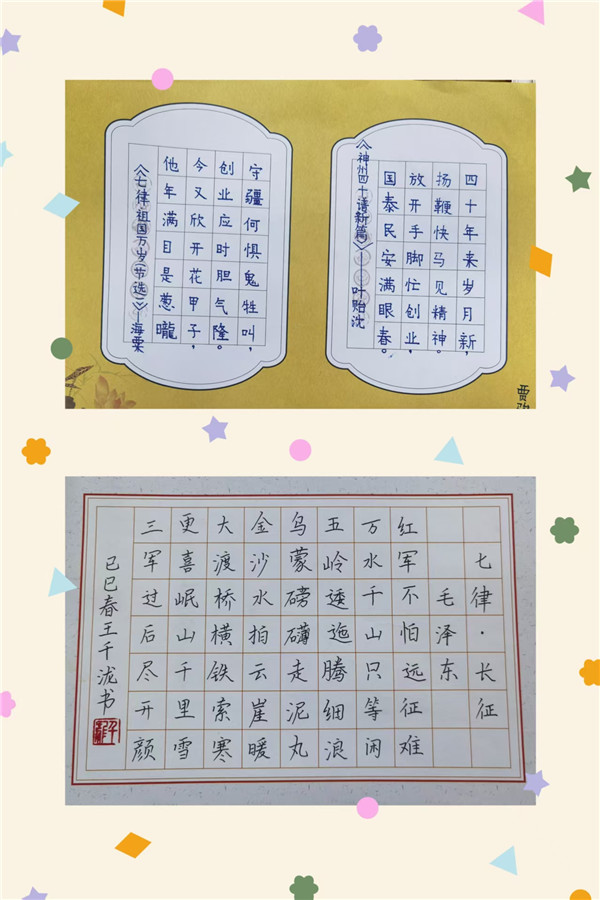 四十年来岁月新，
扬鞭快马见精神。
放开手脚忙创业，
国泰民安满眼春。
《神州四十请新篇》——叶贻沈
守疆何惧鬼牲叫，
创业应时胆气隆。
今又欣开花甲子，
他年满目是葱曨
《七律·祖国万岁(节选)》—海粟
贾
七律·长征
毛泽东
红军不怕远征难
万水千山只等闲
五岭逶迤腾细浪
乌蒙磅礴走泥丸
金沙水拍云崖暖
大渡桥横铁索寒
更喜岷山千里雪
三军过后尽开颜
己巳春王千泷书